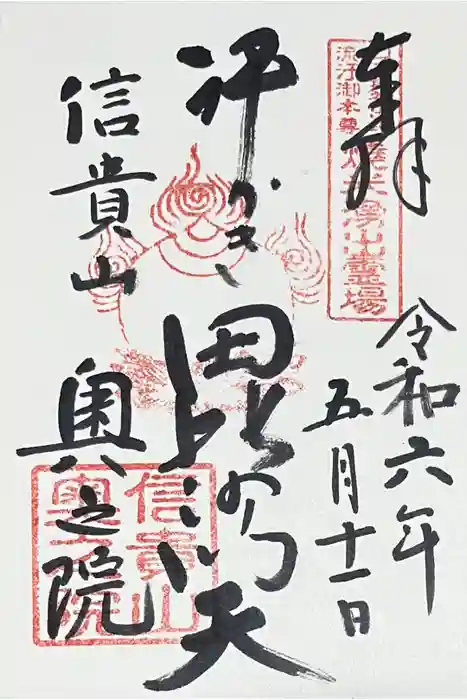 奉拝
流汗御本尊
霊場
令和六年
五月十一日
汗かき
毘沙門天
信貴山
奥之院
信貴山
奥之院